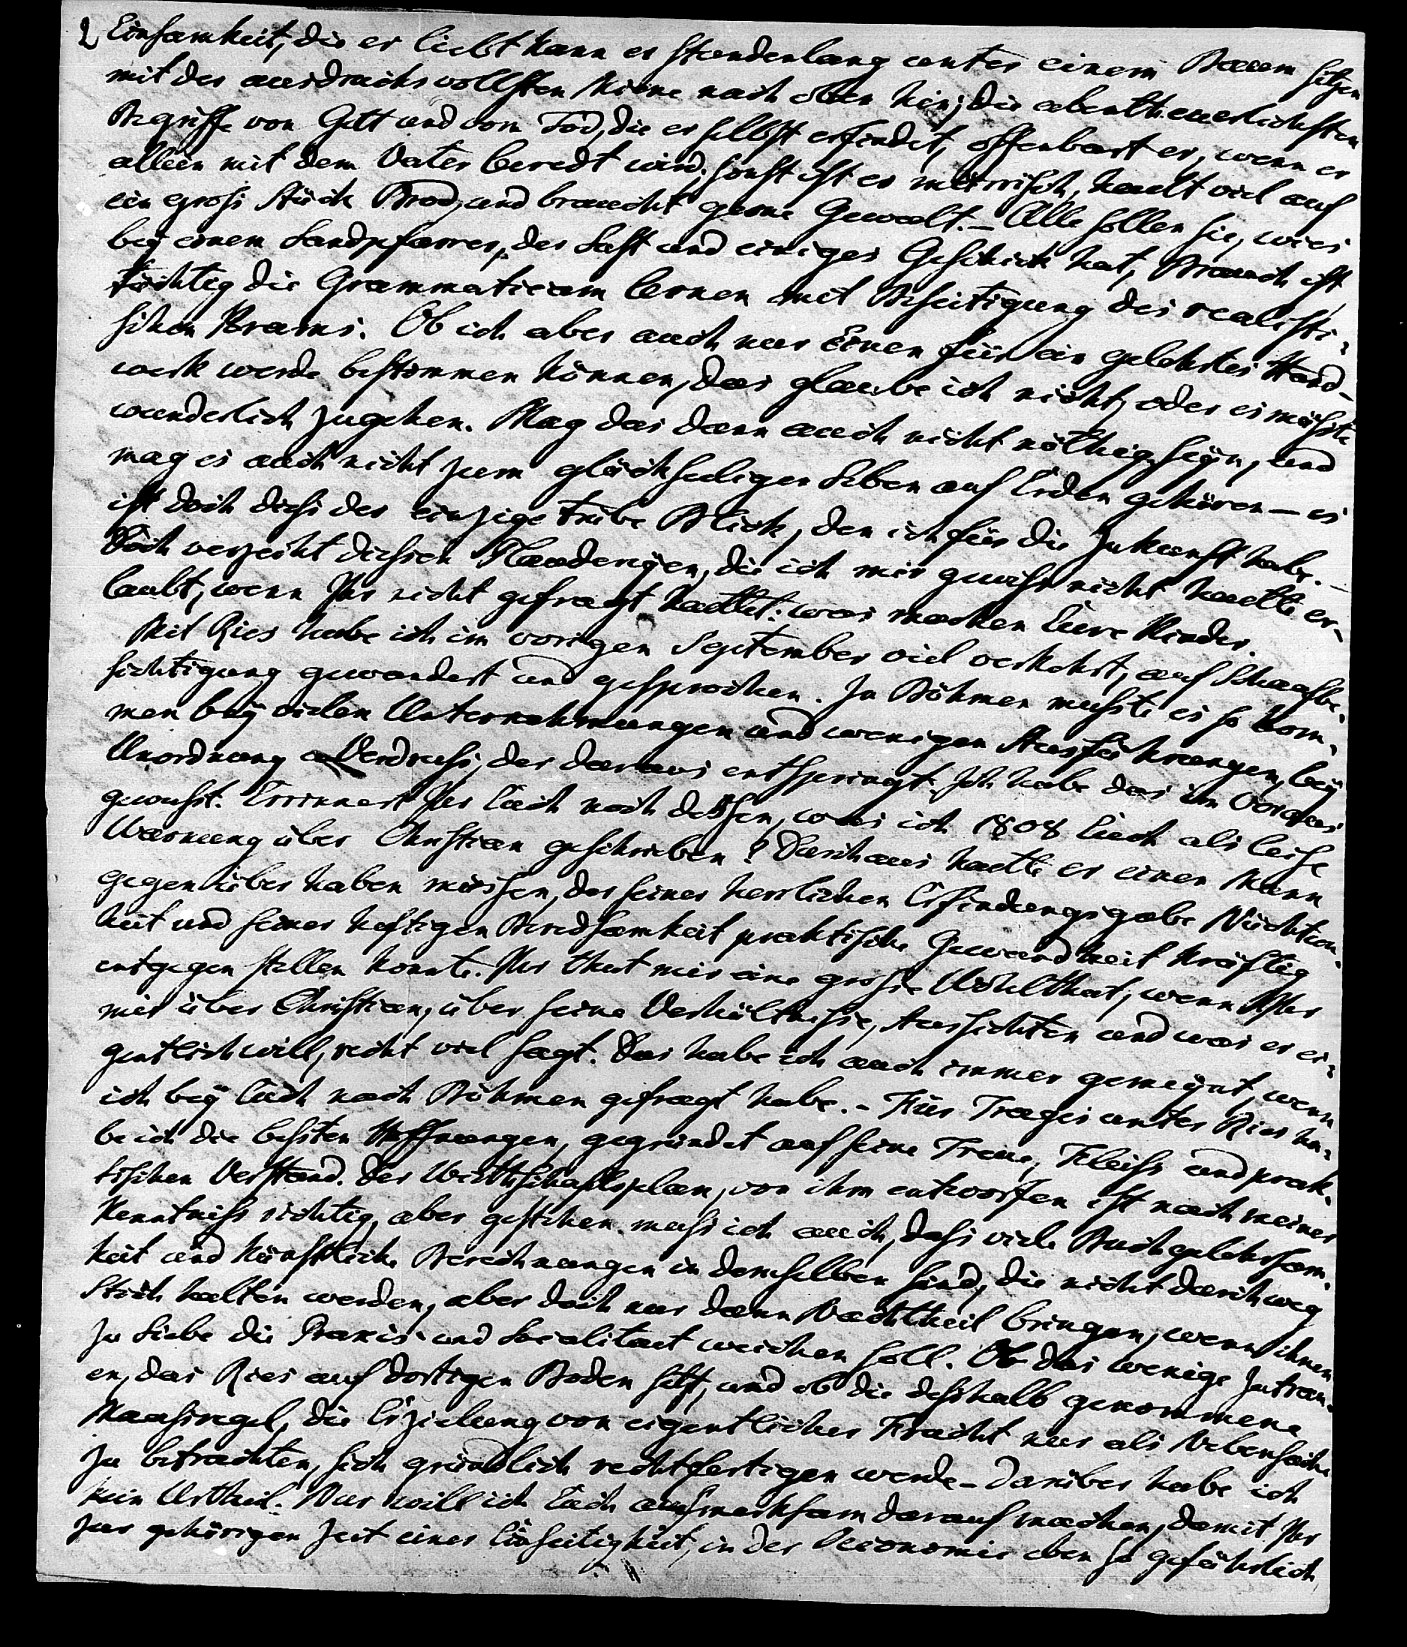 2 Einsamkeit, die er liebt kann er stundenlang unter einem Baum sitzen
mit der ausdrucksvollsten Miene nach oben hin; die abentheuerlichsten
Begriffe von Gott und vom Tod, die er selbst erfindet, offenbart er, wenn er
allein mit dem Vater beredt wird; sonst ist er mürrisch, haelt viel auf
ein gross Stück Brod, und braucht gerne Gewalt. – Alle sollen sie, wies
bey einem Landpfarrer, der Lust und einiges Geschick hat, Brauch ist,
tüchtig die Grammaticam lernen mit Beseitigung des realisti-
schen Krams. Ob ich aber auch nur Einen für ein gelehrtes Hand-
werk werde bestimmen können, das glaube ich nicht, oder es müsste
wunderlich zugehen. Mag das dann auch nicht nöthig seyn, und
mag es auch nicht zum glückseeligen Leben auf Erden gehören – es
ist doch diess der einzige trübe Blick, den ich für die Zukunft habe. –
Doch verzeiht diesen Plaudereyen, die ich mir gewiss nicht haette er-
laubt, wenn Ihr nicht gefragt haettet: was machen Eure Kinder.
Mit Ries habe ich im vorigen September viel verkehrt, auf Schaafbe-
sichtigung gewandert und gesprochen. In Böhmen musste es so kom-
men bey vielen Unternehmungen und wenigen Ausführungen, bey
Unordnung u Verdruss, der daraus entspringt. Ich habe das im Voraus
gewusst. Erinnert Ihr Euch noch dessen, was ich 1808 Euch als leise
Warnung über Christian geschrieben? Durchaus haette er einen Mann
gegenüber haben müssen, der seiner herrlichen Erfindungsgabe Nüchtern-
heit und seiner heftigen Beredsamkeit praktische Gewandheit kräftig
entgegen stellen konnte. Ihr thut mir eine grosse Wohlthat, wenn Ihr
mir über Christian, über seine Verhältnisse, Aussichten und was er ei-
gentlich will, recht viel sagt. Das habe ich auch immer gemeynt, wenn
ich bey Euch nach Böhmen gefragt habe. – Für Tragis unter Ries ha-
be ich die besten Hoffnungen, gegründet auf seine Treue, Fleiss und prak-
tischen Verstand. Der Wirthschaftsplan, von ihm entworfen ist nach meiner
Kenntniss richtig, aber gestehen muss ich auch, dass viele Buchgelehrsam-
keit und künstliche Berechnungen in demselben sind, die nicht durchweg
Stich halten werden, aber doch nur dann Nachtheil bringen, wenn ihnen
zu Liebe die Praxis und Localitaet weichen soll. Ob das wenige Zutrau-
en, das Ries auf dortigen Boden sezt, und ob die desshalb genommene
Maasregel, die Erziehung von eigentlicher Frucht nur als Nebensache
zu betrachten, sich gründlich rechtfertigen werde – darüber habe ich
kein Urtheil. Nur will ich Euch aufmerksam darauf machen, damit Ihr
zur gehörigen Zeit einer Einseitigkeit, in der Oeconomie eben so gefährlich